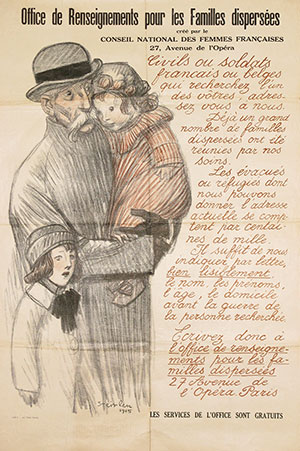 Office de Renseignements pour les Familles dispersées
créé par le
CONSEIL NATIONAL DES FEMMES FRANÇAISES
27, Avenue de l'Opéra
Civils ou soldats
français ou belges
qui recherchez l'un
des vôtres, adres-
sez vous à nous.
Déjà un grand
nombre de familles
dispersées ont été
réunies par nos
soins.
Les évacués
ou réfugiés dont
nous pouvons
donner l'adresse
actuelle se comp
tent par centai
nes de mille.
Il suffit de nous
indiquer par lettre
bien lisiblement,
le nom, les prénoms,
l'âge, le domicile
avant la guerre de
la personne recherchée.
Ecrivez donc à
l'office de renseigne-
ments pour les fa-
milles dispersées
27 Avenue de
l'Opéra Paris
Steinlen
1915
LES SERVICES DE L'OFFICE SONT GRATUITS